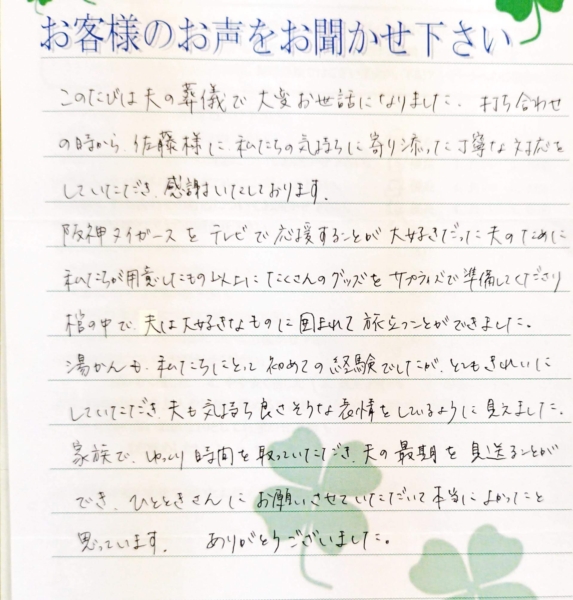 お客様のお声をお聞かせ下さい
このたびは夫の葬儀で大変お世話になりました。打ち合わせ
の時から、佐藤様に、私たちの気持ちに寄り添った丁寧な対応を
していただき、感謝いたしております。
阪神タイガースをテレビで応援することが大好きだった夫のために
私たちが用意したもの以上にたくさんのグッズをサプライズで準備してくださり
棺の中で、夫は大好きなものに囲まれて旅立つことができました。
湯かんも、私たちにとって初めての経験でしたが、とてもきれいに
していただき、夫も気持ち良さそうな表情をしているように見えました。
家族で、ゆっくり時間を取っていただき、夫の最期を見送ることが
でき、ひとときさんにお願いさせていただいて本当によかったこと
思っています。 ありがとうございました。